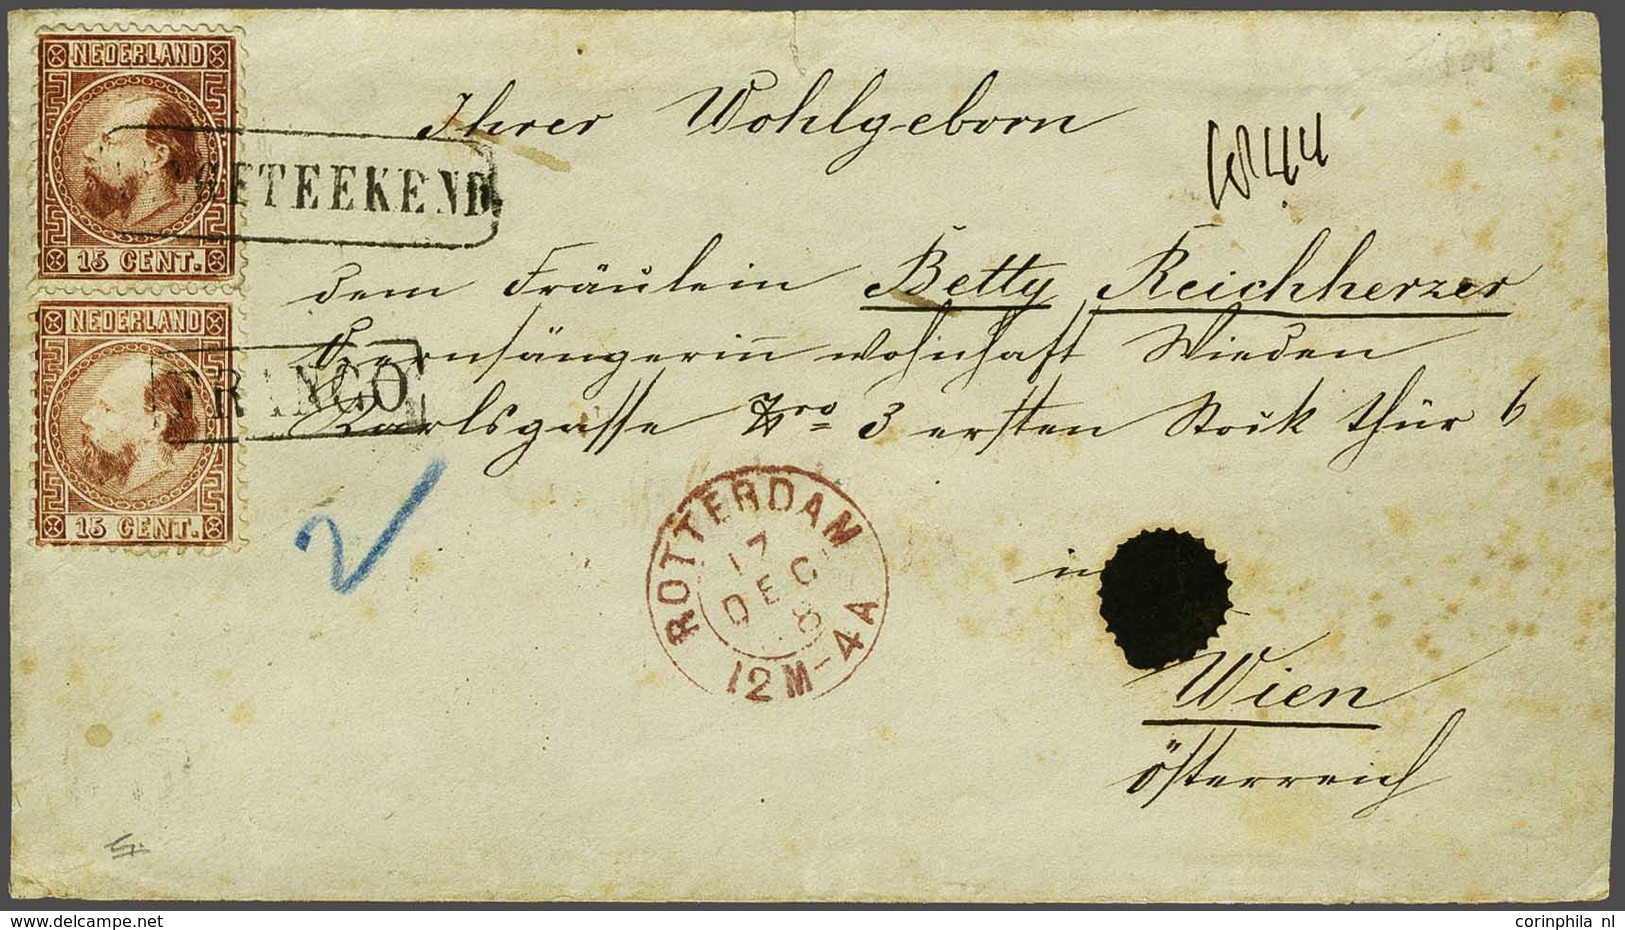 NEDERLAND
15 CENT.
NEDERLAND
15 CENT.
GETEEKEND
FRANCO
Ihrer Wohlgeborn
dem Fräulein Betty Reichherzer
Opernsängerin wohnhaft Wieden
Karlsgasse Nro 3 ersten Stock thür 6
2
ROTTERDAM
17
DEC
8
12M-4A
in
Wien
österreich
corinphila nl